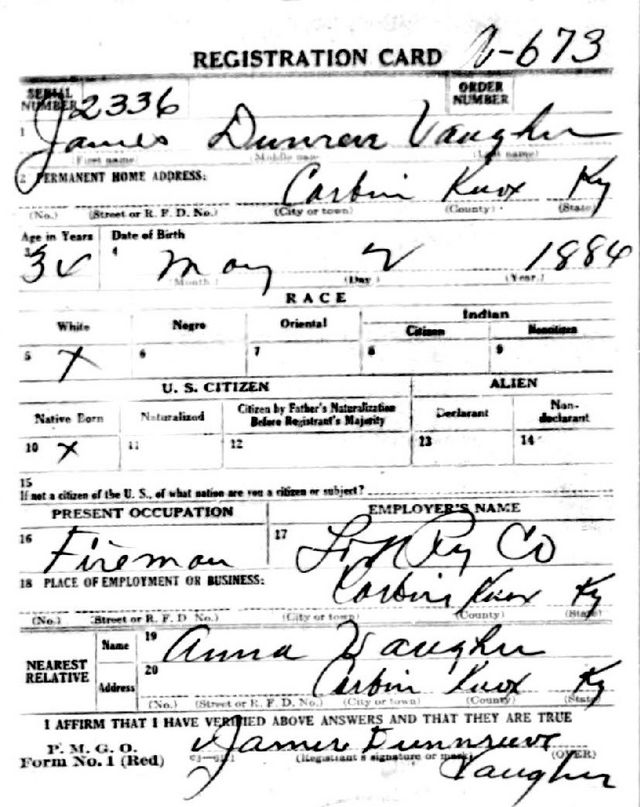 REGISTRATION CARD A-673
SERIAL NUMBER 2336 ORDER NUMBER
1 James Vaughn
(First name) (Middle name) (Last name)
2 PERMANENT HOME ADDRESS: Corbin Knox Ky
(No.) (Street or R. F. D. No.) (City or town) (County) (State)
Age in Years Date of Birth
3 34 4 May 2 1884
(Month) (Day) (Year)
RACE
White Negro Oriental Indian
Citizen Noncitizen
5 X 6 7 8 9
U. S. CITIZEN ALIEN
Native Born Naturalized Citizen by Father's Naturalization Before Registrant's Majority Declarant Non-declarant
10 X 11 12 13 14
15
If not a citizen of the U. S., of what nation are you a citizen or subject?
PRESENT OCCUPATION EMPLOYER'S NAME
16 Fireman 17 L & N Ry Co
18 PLACE OF EMPLOYMENT OR BUSINESS: Corbin Knox Ky
(No.) (Street or R. F. D. No.) (City or town) (County) (State)
NEAREST RELATIVE Name 19 Anna Vaughn
Address 20 Corbin Knox Ky
(No.) (Street or R. F. D. No.) (City or town) (County) (State)
I AFFIRM THAT I HAVE VERIFIED ABOVE ANSWERS AND THAT THEY ARE TRUE
P. M. G. O.
Form No. 1 (Red) James Vaughn
(Registrant's signature or mark) (OVER)